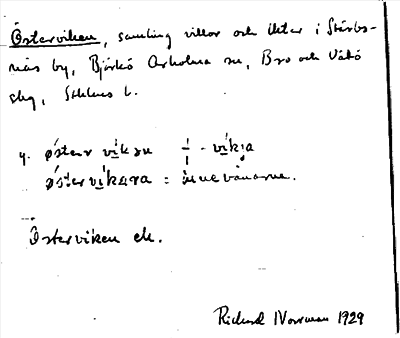 Österviken, samling villor och lkter i Stärbs-
näs by, Björkö Arholma sn, Bro och Vätö
skg, Sthlms l.
y. østər vikən ⊥ - vikja
østərvikara = innevånarne.
Österviken ek.
Richard Norrman 1929